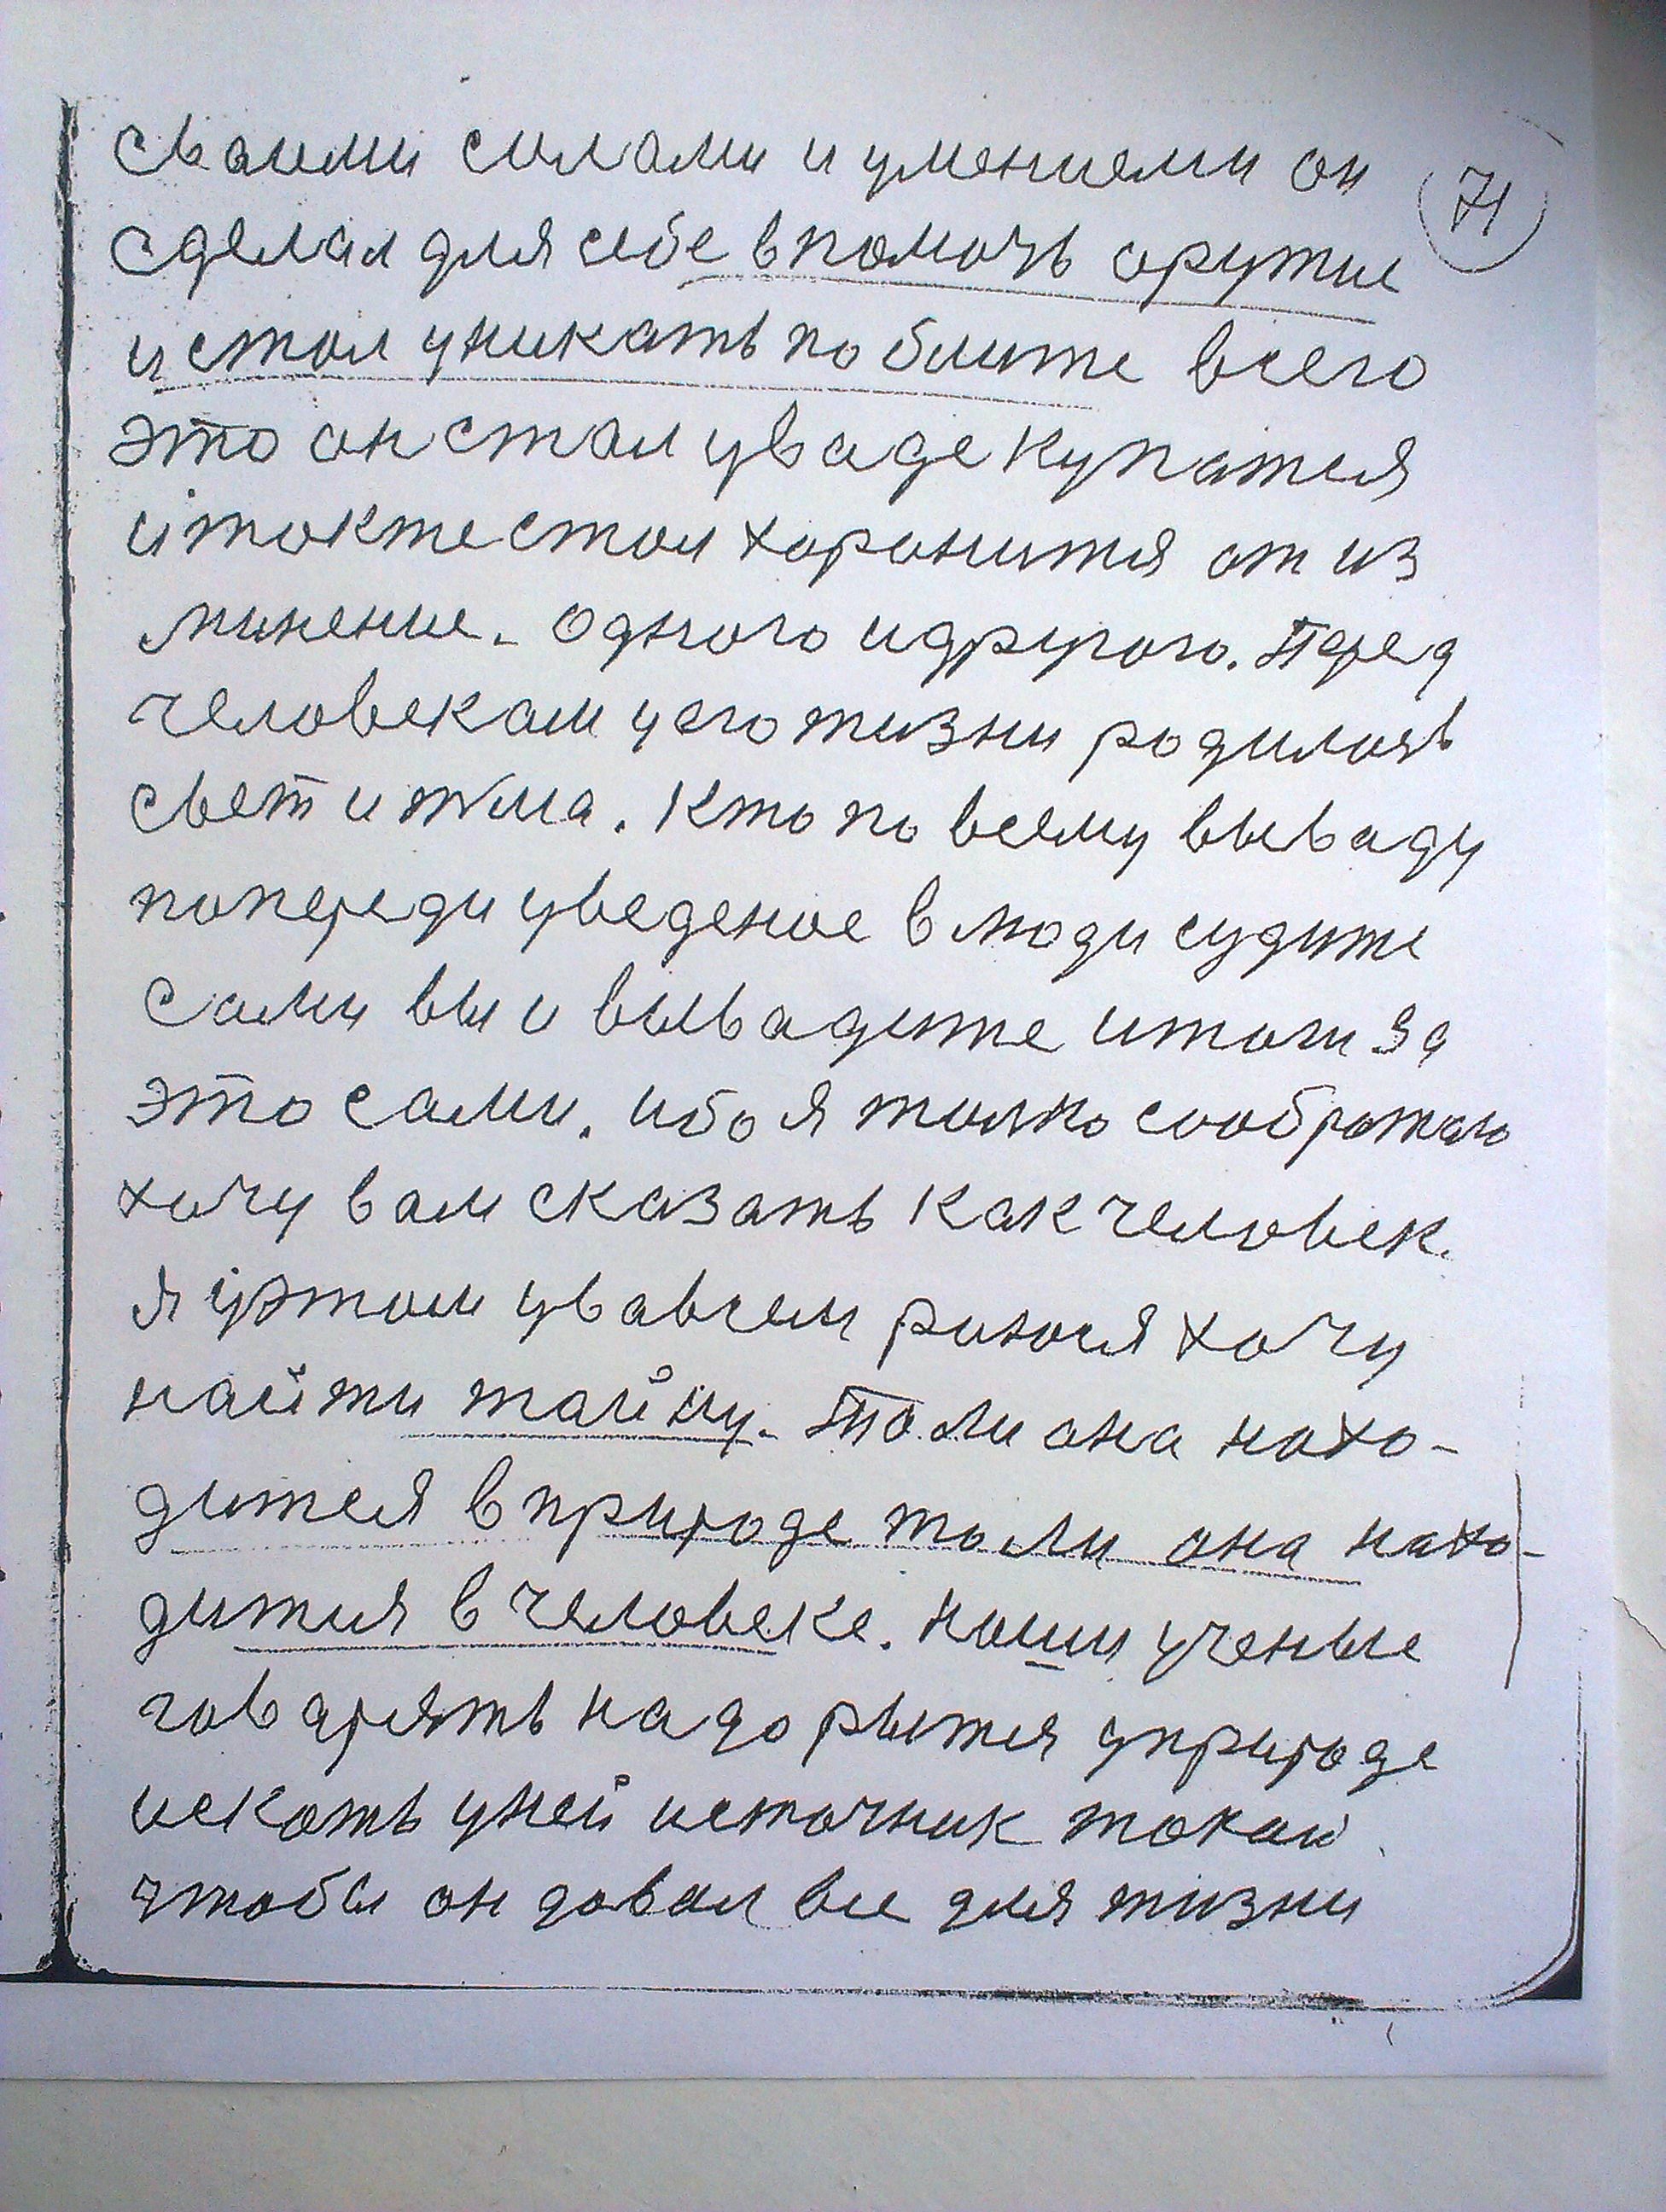 сваими силами и умениеми он
71
сделал для себе впомочь аружие
и стал уникать по ближе всего
это он стал уваде купатся
и также стал хоронится от из
минение. Одного идругого. Перед
человекам уего жизни родилось
свет и тма. Кто по всему вываду
попереди уведеное влюди судите
сами вы и вывадите итоги за
это сами. ибо я толко соображаю
хочу вам сказать как человек.
я уэтом увавсем рился хочу
найти тайну. То ли она нахо-
дится в природе то ли она нахо-
дится в человеке. наши ученые
говарять надо рытся уприроде
искать уней источник такой
чтобы он давал все для жизни